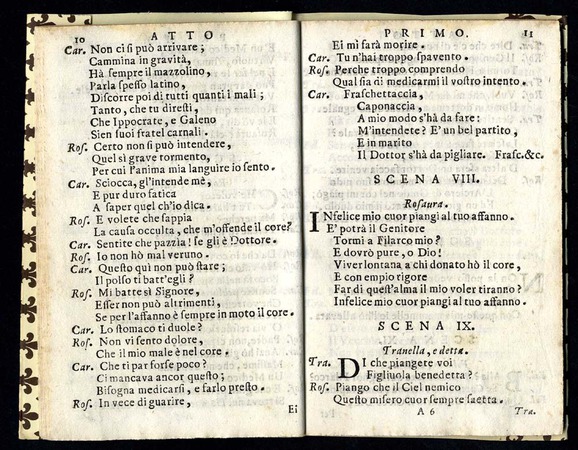 10 ATTO
Car. Non ci si può arrivare;
Cammina in gravità,
Hà sempre il mazzolino,
Parla speſſo latino,
Diſcorre poi di tutti quanti i mali;
Tanto, che tu direſti,
Che Ippocrate, e Galeno
Sien ſuoi fratel carnali.
Roſ. Certo non ſi può intendere,
Quel sì grave tormento,
Per cui l'anima mia languire io ſento.
Car. Sciocca, gl'intende mè,
E pur duro fatica
A ſaper quel ch'io dica.
Roſ. E volete che ſappia
La cauſa occulta, che m'offende il core?
Car. Sentite che pazzia! ſe gli è Dottore.
Roſ. Io non hò mal veruno.
Car. Queſto quì non può ſtare;
Il polſo ti batt'egli?
Roſ. Mi batte sì Signore,
Eſſer non può altrimenti,
Se per l'affanno è ſempre in moto il core.
Car. Lo ſtomaco ti duole?
Roſ. Non vi ſento dolore,
Che il mio male è nel core.
Car. Che ti par forſe poco?
Ci mancava ancor queſto;
Biſogna medicarſi, e farlo preſto.
Roſ. In vece di guarire,
Ei
PRIMO. 11
Ei mi farà morire.
Car. Tu n'hai troppo ſpavento.
Roſ. Perche troppo comprendo
Qual ſia di medicarmi il voſtro intento.
Car. Fraſchettaccia,
Caponaccia,
A mio modo s'hà da fare:
M'intendete? E' un bel partito,
E in marito
Il Dottor s'hà da pigliare. Fraſc.&c.
SCENA VIII.
Roſaura.
INfelice mio cuor piangi al tuo affanno.
E' potrà il Genitore
Tormi a Filarco mio?
E dovrò pure, o Dio!
Viver lontana, a chi donato hò il core,
E con empio rigore
Far di queſt'alma il mio voler tiranno?
Infelice mio cuor piangi al tuo affanno.
SCENA IX.
Tranella, e detta.
Tra. DI che piangete voi
Figliuola benedetta?
Roſ. Piango che il Ciel nemico
Queſto miſero cuor ſempre ſaetta.
A 6 Tra.